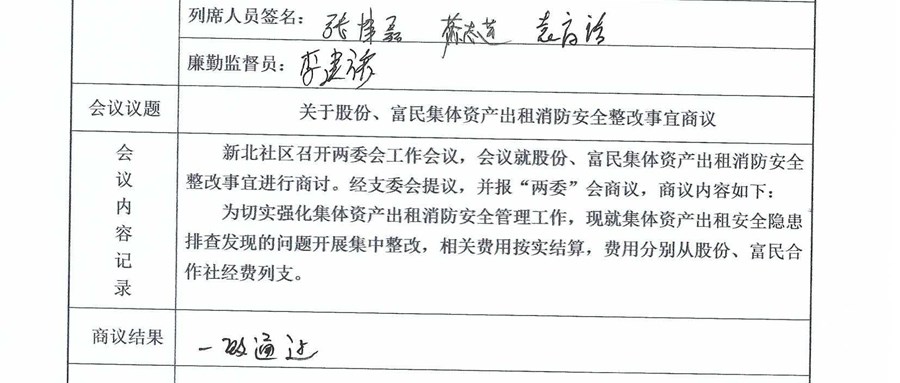 列席人员签名：
廉勤监督员：
会议议题 关于股份、富民集体资产出租消防安全整改事宜商议
会议内容记录
新北社区召开两委会工作会议，会议就股份、富民集体资产出租消防安全
整改事宜进行商讨。经支委会提议，并报“两委”会商议，商议内容如下：
为切实强化集体资产出租消防安全管理工作，现就集体资产出租安全隐患
排查发现的问题开展集中整改，相关费用按实结算，费用分别从股份、富民合
作社经费列支。
商议结果 一致通过